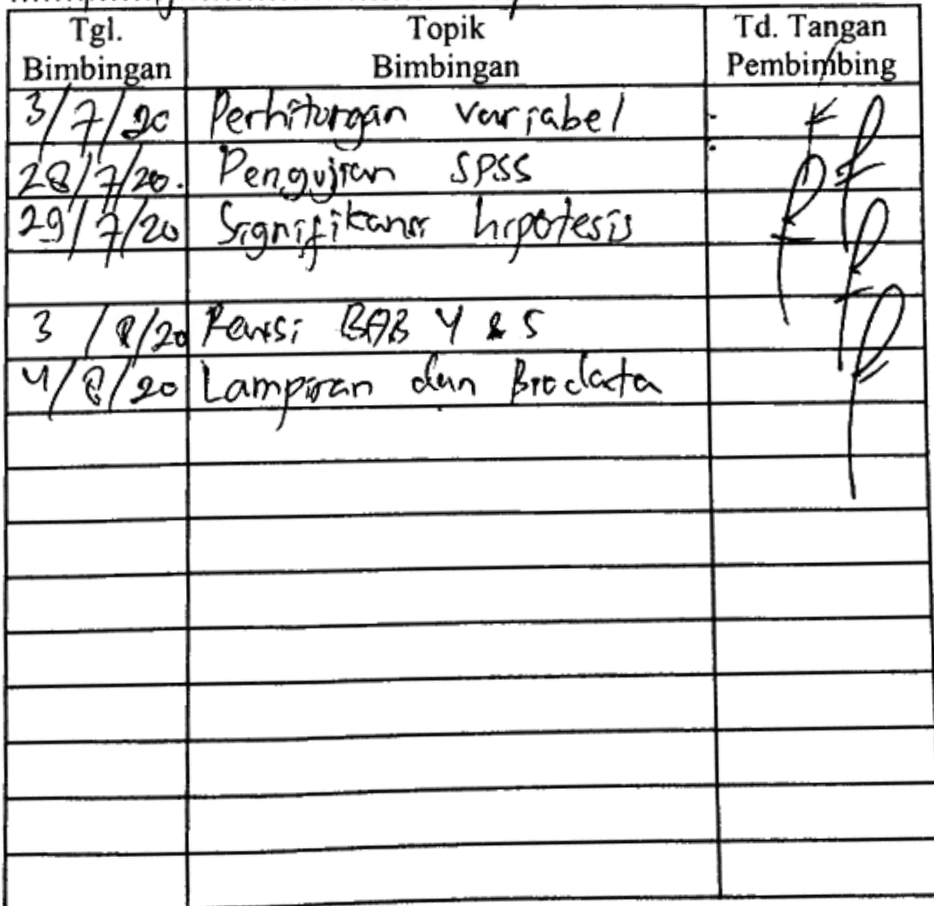 Tgl. Bimbingan Topik Bimbingan Td. Tangan Pembimbing
3/7/20 Perhitungan variabel
28/7/20. Pengujian SPSS
29/7/20 Signifikansi hipotesis
3/8/20 Revisi BAB 4 & 5
4/8/20 Lampiran dan Biodata